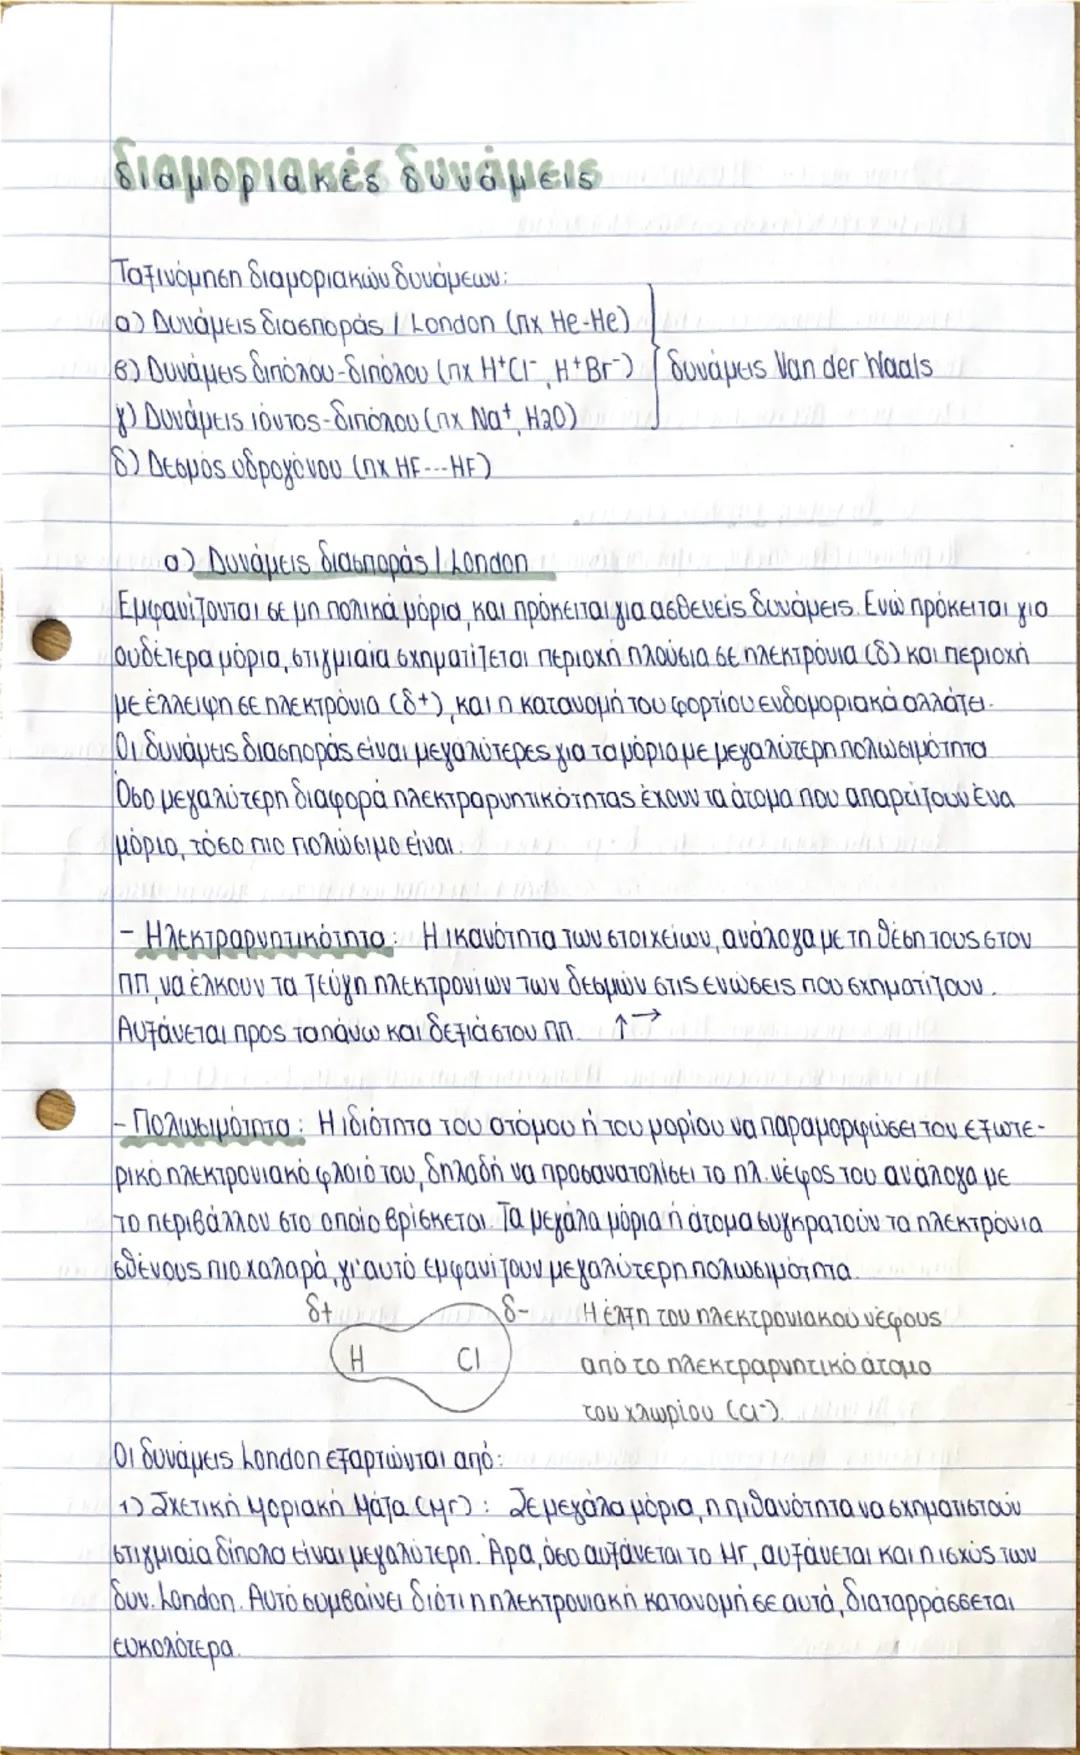 διαμοριακές δυνάμεις
Ταξινόμηση διαμοριακών δυνάμεων:
α) Δυνάμεις διασποράς / London (πχ He-He)
β) Δυνάμεις διπόλου-διπόλου (πχ H⁺Cl⁻, H⁺Br⁻)
δυνάμεις Van der Waals
γ) Δυνάμεις ιόντος-διπόλου (πχ Na⁺, H2O)
δ) Δεσμός υδρογόνου (πχ HF---HF)
α) Δυνάμεις διασποράς / London
Εμφανίζονται σε μη πολικά μόρια, και πρόκειται για ασθενείς δυνάμεις. Ενώ πρόκειται για
ουδέτερα μόρια, στιγμιαία σχηματίζεται περιοχή πλούσια σε ηλεκτρόνια (δ) και περιοχή
με έλλειψη σε ηλεκτρόνια (δ+), και η κατανομή του φορτίου ενδομοριακά αλλάζει.
Οι δυνάμεις διασποράς είναι μεγαλύτερες για τα μόρια με μεγαλύτερη πολωσιμότητα
Όσο μεγαλύτερη διαφορά ηλεκτραρνητικότητας έχουν τα άτομα που απαρτίζουν ένα
μόριο, τόσο πιο πολώσιμο είναι.
- Ηλεκτραρνητικότητα: Η ικανότητα των στοιχείων, ανάλογα με τη θέση τους στον
ΠΠ, να έλκουν τα ζεύγη ηλεκτρονίων των δεσμών στις ενώσεις που σχηματίζουν.
Αυξάνεται προς τα πάνω και δεξιά στου ΠΠ. ↑→
- Πολωσιμότητα: Η ιδιότητα του ατόμου ή του μορίου να παραμορφώσει τον εξωτε-
ρικό ηλεκτρονιακό φλοιό του, δηλαδή να προσανατολίσει το ηλ. νέφος του ανάλογα με
το περιβάλλον στο οποίο βρίσκεται. Τα μεγάλα μόρια ή άτομα συγκρατούν τα ηλεκτρόνια
σθένους πιο χαλαρά, γι'αυτό εμφανίζουν μεγαλύτερη πολωσιμότητα.
δ+ δ- Η έλξη του ηλεκτρονιακού νέφους
H Cl από το ηλεκτραρνητικό άτομο
του χλωρίου (Cl⁻).
Οι δυνάμεις London εξαρτώνται από:
1) Σχετική Μοριακή Μάζα (Mr): Σε μεγάλα μόρια, η πιθανότητα να σχηματιστούν
στιγμιαία δίπολα είναι μεγαλύτερη. Άρα, όσο αυξάνεται το Mr, αυξάνεται και η ισχύς των
δυν. London. Αυτό συμβαίνει διότι η ηλεκτρονιακή κατανομή σε αυτά, διαταρράσσεται
ευκολότερα.